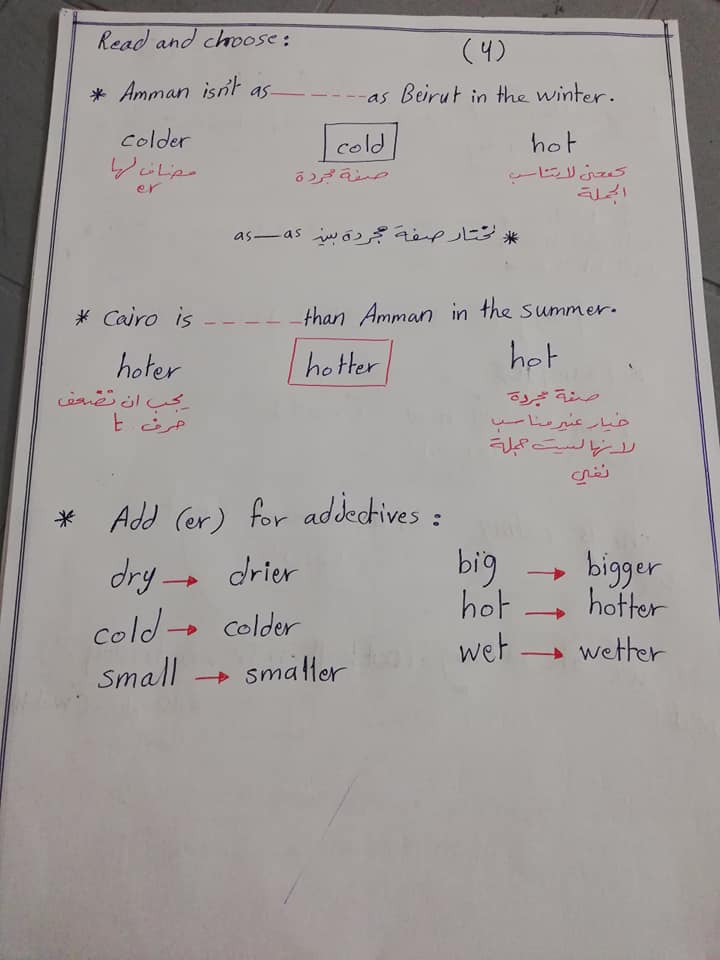 Read and choose:
(4)
* Amman isn't as ------- as Beirut in the winter.
colder cold hot
مضاف لها
er
صفة مجردة
كمعنى لا يتناسب
الجملة
* نختار صفة مجردة بين as—as
* Cairo is ----- than Amman in the summer.
hoter hotter hot
يجب ان تضعف
حرف t
صفة مجردة
خيار غير مناسب
لانها ليست جملة
نفي
* Add (er) for adjectives :
dry → drier
cold → colder
small → smaller
big → bigger
hot → hotter
wet → wetter